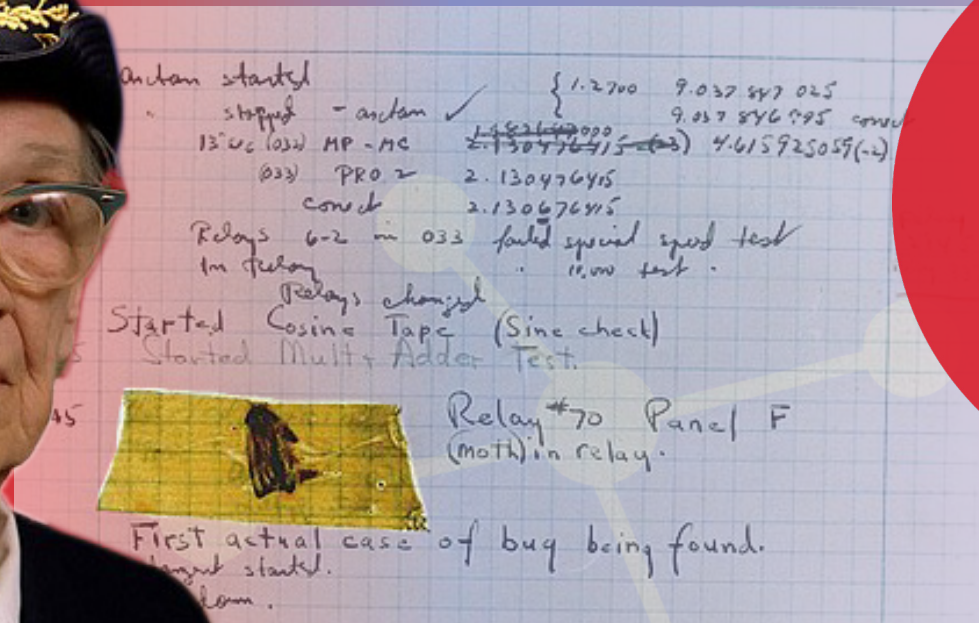 arctan started
" stopped - arctan ✓ { 1.2700 9.037 847 025
9.037 846 995 correct
13" UC (032) MP - MC 2.130476415 (-3) 4.615925059(-2)
(033) PRO 2 2.130476415
correct 2.130676415
Relays 6-2 in 033 failed special speed test
In Relay " 10,000 test .
Relays changed
Started Cosine Tape (Sine check)
5 Started Mult + Adder Test.
45 Relay #70 Panel F
(moth) in relay.
First actual case of bug being found.
started.
down.